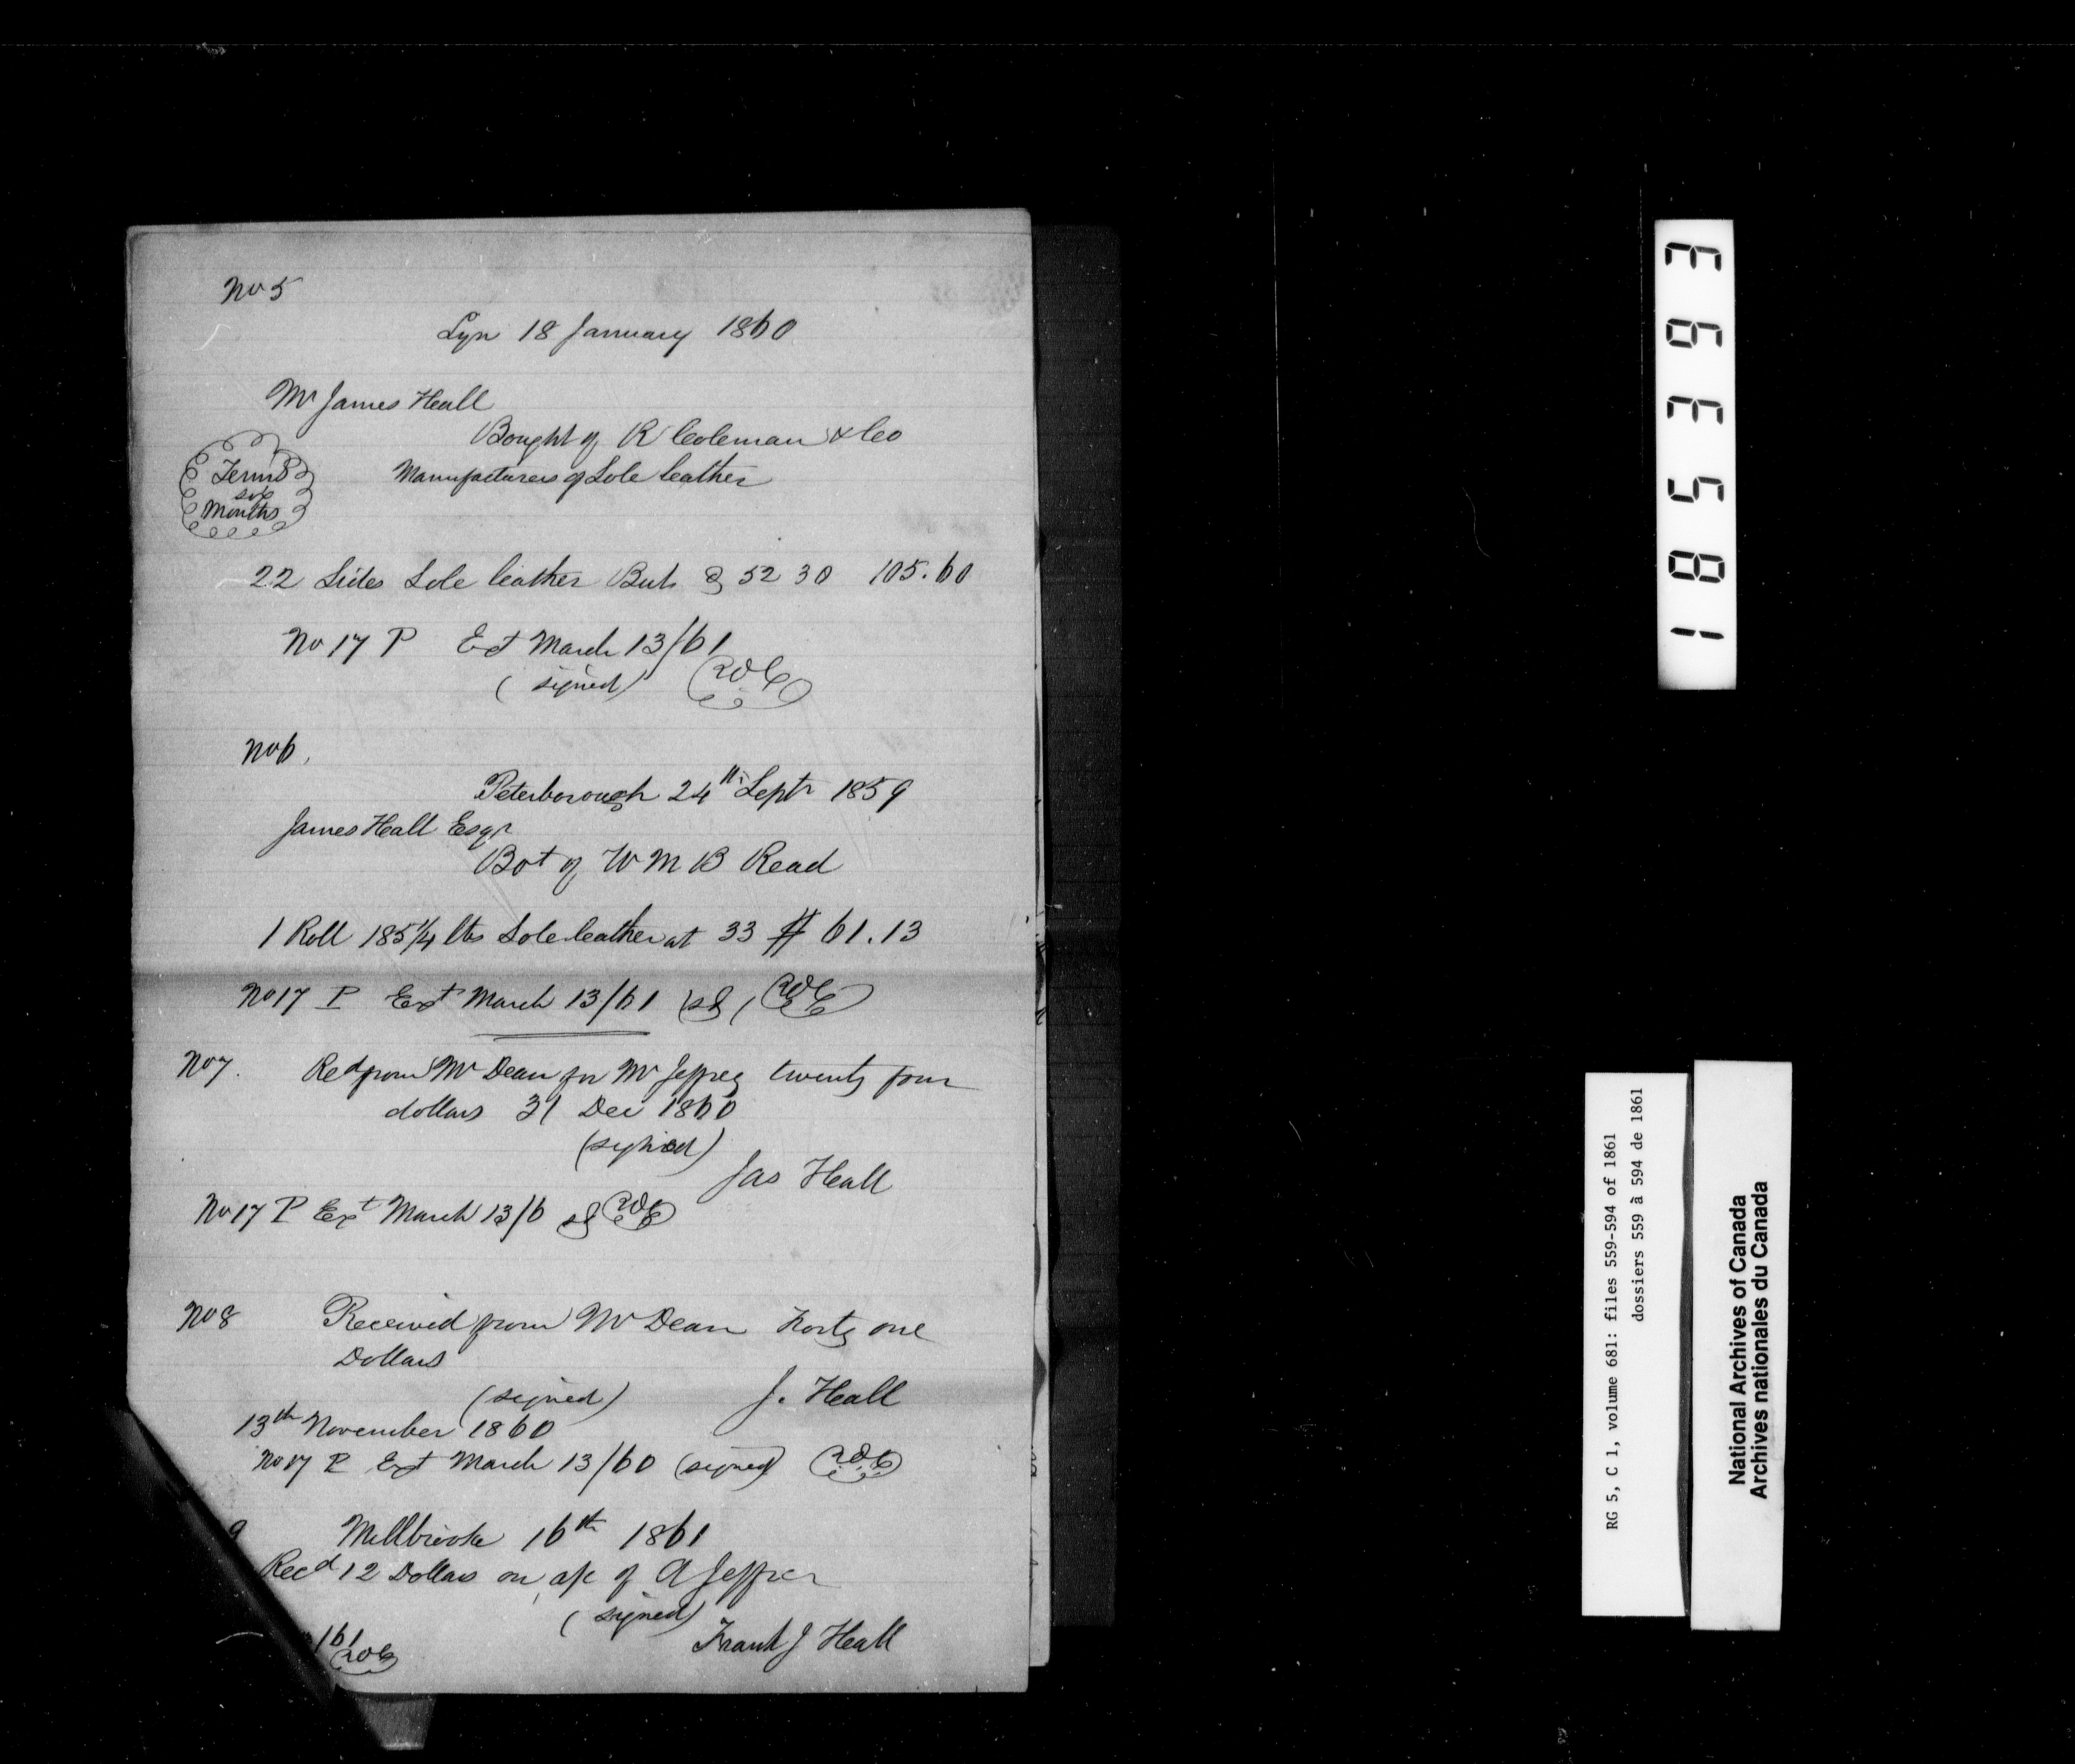 No 5
Lyn 18 January 1860
Mr James Hall
Bought of R Coleman & Co
Terms
six
Months
Manufacturers of Sole leather
22 Sides Sole leather Buts 352 30 105.60
No 17 P Ext March 13/61
(signed)
No 6.
Peterborough 24th Septr 1859
James Hall Esqr
Bot of W M B Read
1 Roll 185 1/4 lbs Sole leather at 33 $ 61.13
No 17 P Ext March 13/61
No 7. Recd from Mr Dean for Mr Jeffrey twenty four
dollars 31 Dec 1860
(signed)
Jas Hall
No 17 P Ext March 13/6
No 8 Received from Mr Dean Forty one
Dollars
(signed) J. Hall
13th November 1860
No 17 P Ext March 13/60 (signed)
9 Millbrooke 16th 1861
Recd 12 Dollars on a/c of A Jeffrey
(signed)
Frank J Hall
/61
185393
RG 5, C 1, volume 681: files 559-594 of 1861
dossiers 559 à 594 de 1861
National Archives of Canada
Archives nationales du Canada